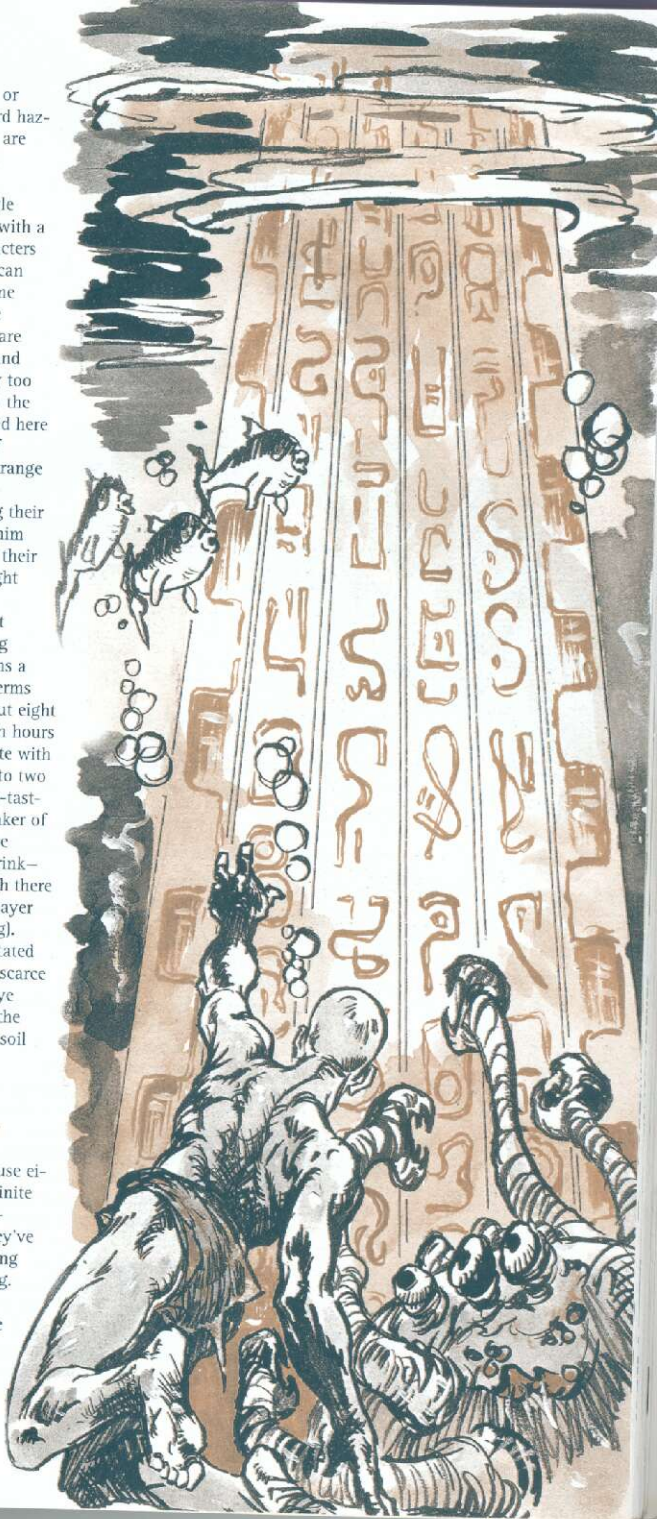 or
rd haz-
are
le
with a
cters
can
ne
are
nd
too
the
d here
range
g their
him
their
ght
t
g
ns a
erms
ut eight
n hours
te with
to two
–tast-
ker of
e
rink–
h there
ayer
g).
tated
scarce
ye
the
soil
use ei-
inite
-
ey've
ng
g.
e